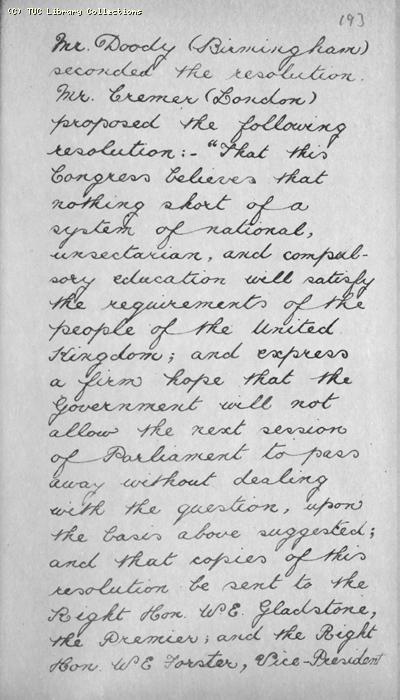 (C) TUC Library Collections
193
Mr. Doody (Birmingham)
seconded the resolution.
Mr. Cremer (London)
proposed the following
resolution:- "That this
Congress believes that
nothing short of a
system of national,
unsectarian, and compul-
sory education will satisfy
the requirements of the
people of the United
Kingdom; and express
a firm hope that the
Government will not
allow the next session
of Parliament to pass
away without dealing
with the question, upon
the basis above suggested;
and that copies of this
resolution be sent to the
Right Hon. W.E. Gladstone,
the Premier; and the Right
Hon. W E Forster, Vice-President